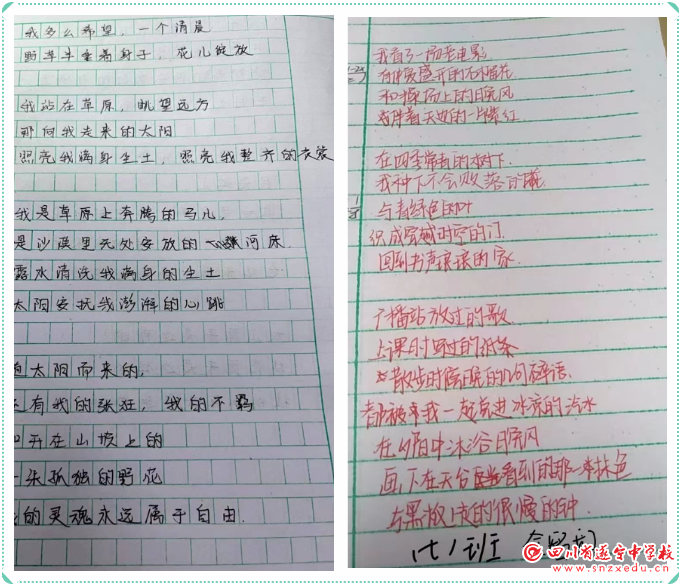 我多么希望，一个清晨
野草牛垂着身子，花儿绽放
我站在草原，眺望远方
那向我走来的太阳
照亮我满身尘土，照亮我整齐的衣裳
我是草原上奔腾的马儿，
是沙漠里无处安放的 河床
露水清洗我满身的尘土
太阳安抚我澎湃的心跳
太阳而来的，
有我的张狂，我的不羁
开在山坡上的
朵孤独的野花
的灵魂永远属于自由.
我看了一场老电影
有种爱盛开的石榴花
和操场上的晚风
天边的一片绯红
在四季常青的树下
我种下不会败落的
与青绿色的叶
织成穿越时空的门
回到书声琅琅的家
广播站放过的歌
上课时写过的纸条
散步时 的几句碎语
都被我一起 进冰凉的汽水
在夕阳中沐浴晚风
画下在天台 看到的那一抹色
与黑板上 的很慢的钟
(七)班
四川省遂宁中学校
www.snzxedu.cn